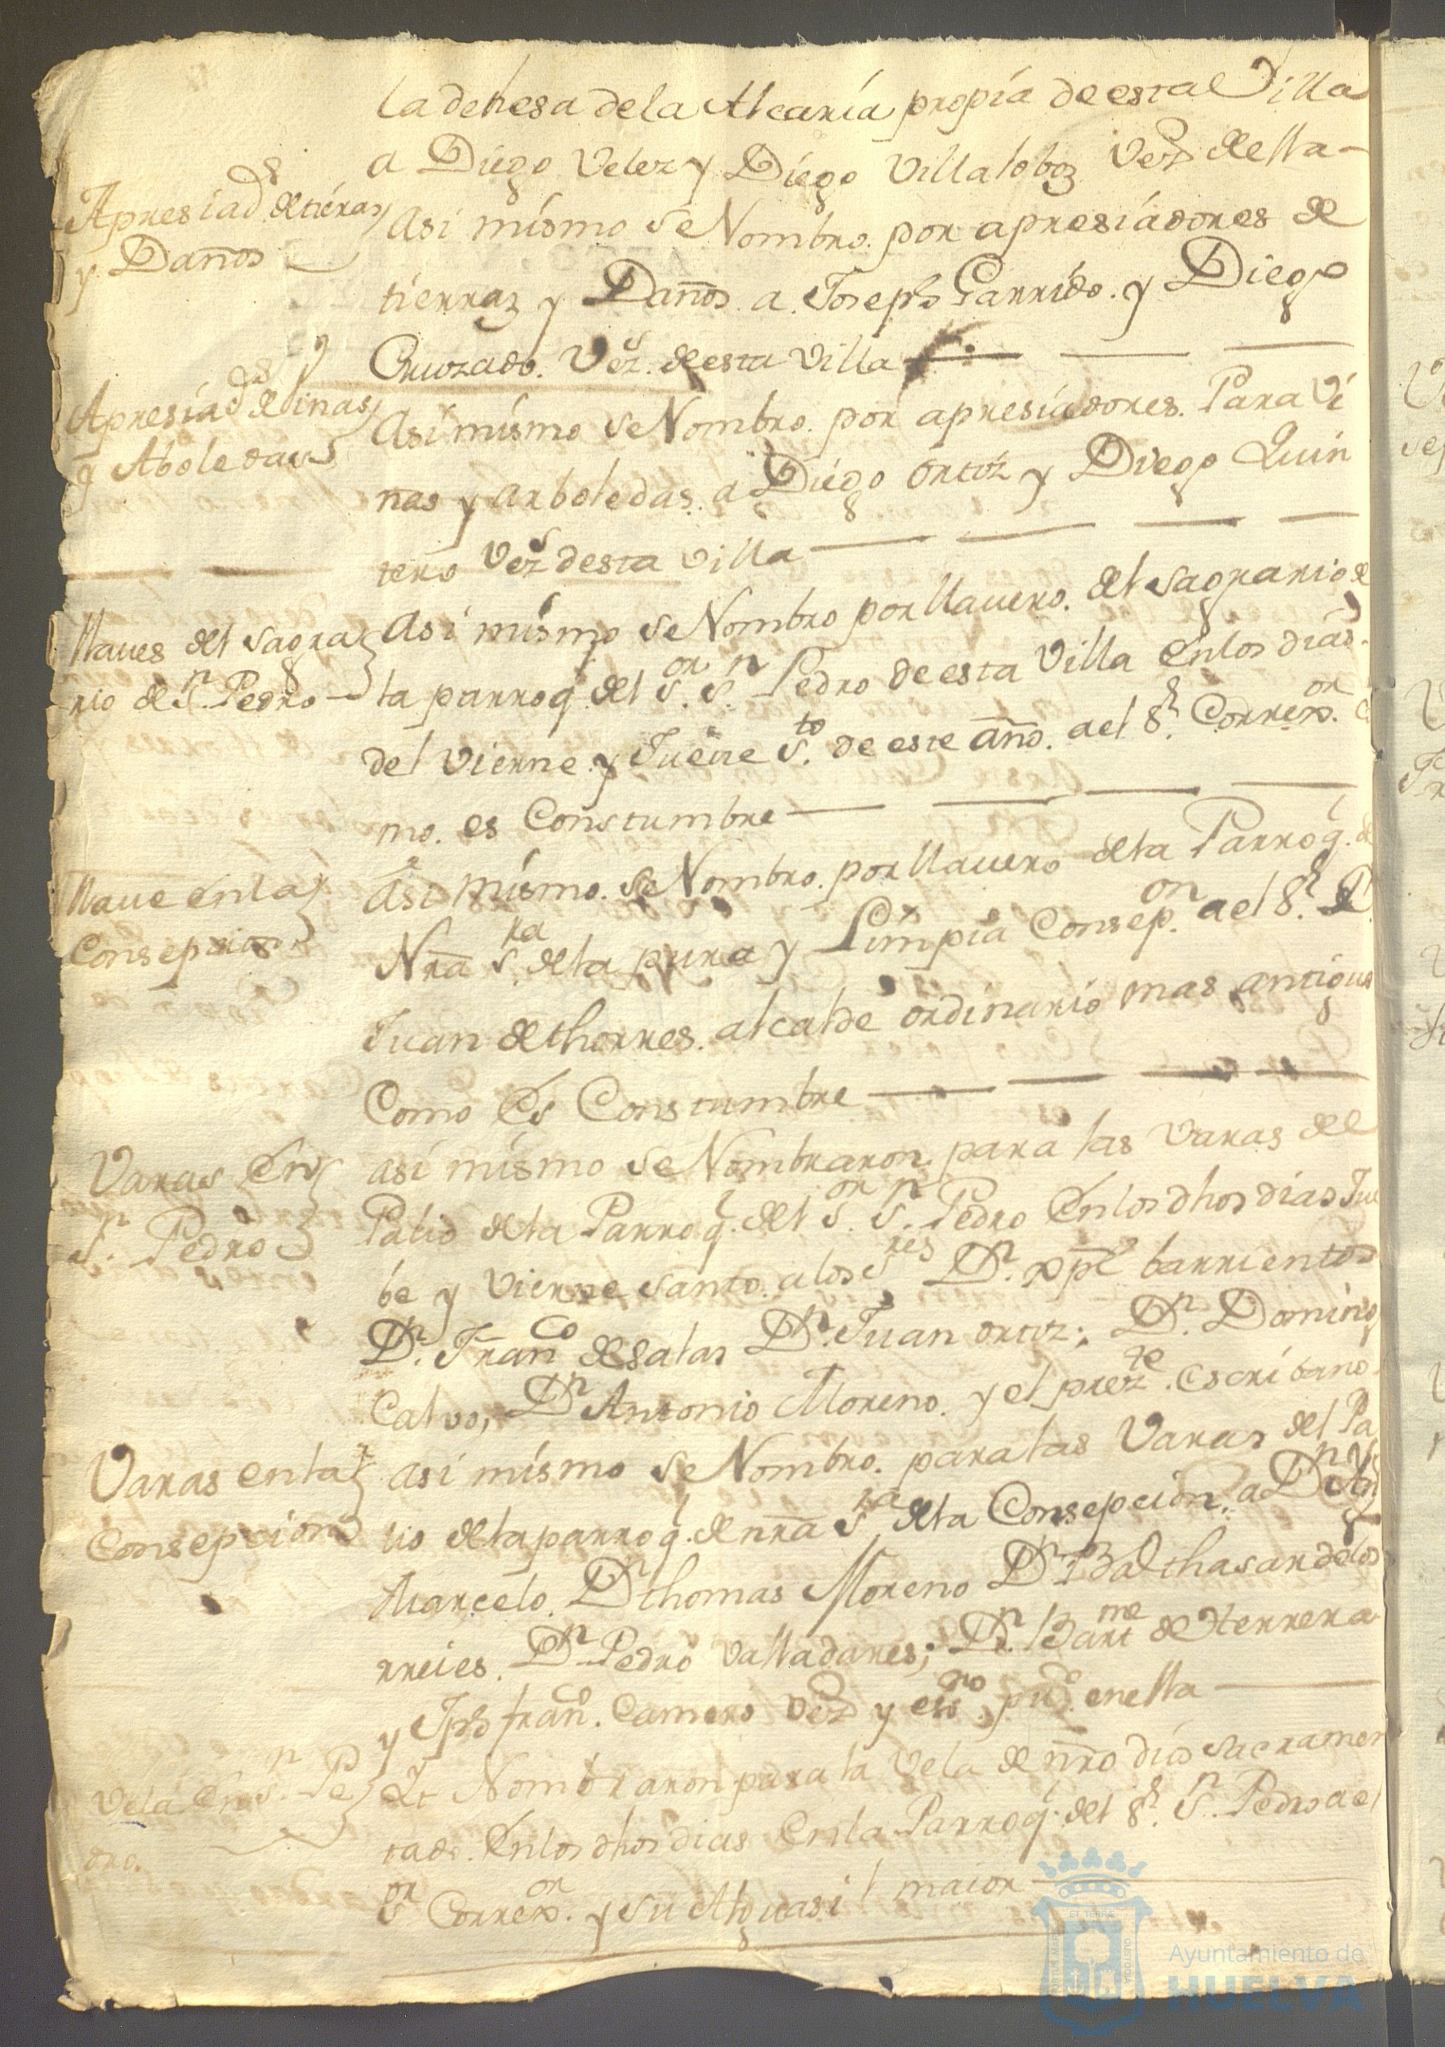 la dehesa de la Alcaría propía de esta Villa
a Diego Velez y Diego Villalobos Vez.s della
Apresiad.s de tieras
y Daños
Asi mismo se Nombro. por apresiadores de
tierras y Daños. a. Joseph Garrido. y Diego
Cruzado. Vez.s de esta Villa
Apresiad.s de Vinas
y Aboledas
Asi mismo se Nombro. por apresiadores. Para Vi
nas y arboledas. a Diego Ortiz y Diego Quin
tero Vez.s desta Villa
llaues del sagra
rio de S.n Pedro
Asi mismo se Nombro por llauero. del sagrario de
la parroq. del S.or S.n Pedro de esta Villa en los dias
del Vierne. y Jueue S.to de este año. a el S.r Correx.or Co
mo. es Constumbre
llaue en la
Consepcion
Asi mismo. se Nombro. por llauero de la Parroq. de
Nra S.ra de la pura y Limpia Consep.on a el S.r D.n
Juan de thorres. alcalde ordinario mas antiguo
Como Es Constumbre
Varas En
S.n Pedro
asi mismo se Nombraron. para las Varas del
Palio de la Parroq. del S.or S.n Pedro En los dhos dias Jue
be y Vierne santo. a los S.res D.n xpl barrientos
D.n Fran.co de salas D.n Juan ortiz; D.n Doming
Calvo, D.n Antonio Moreno. y el prez.te escribano.
Varas en la
Consepcion
asi mismo se Nombro. para las Varas del Pa
lio de la parroq. de nra S.ra de la Consepcion. a D.n
Marcelo. D.n thomas Moreno D.n Balthasar de los
rreies. D.n Pedro Valladares; D.n Bart.me de Herrera
y Jph fran.co Camero Vez.o y es.no pu.co en ella
Vela En S.n Pe
dro.
Yt Nombraron para la Vela de nro dios sacramen
tado. En los dhos dias En la Parroq. del S.r S.n Pedro a el
S.or Correx.or y su Alguasil maior
Ayuntamiento de
HUELVA